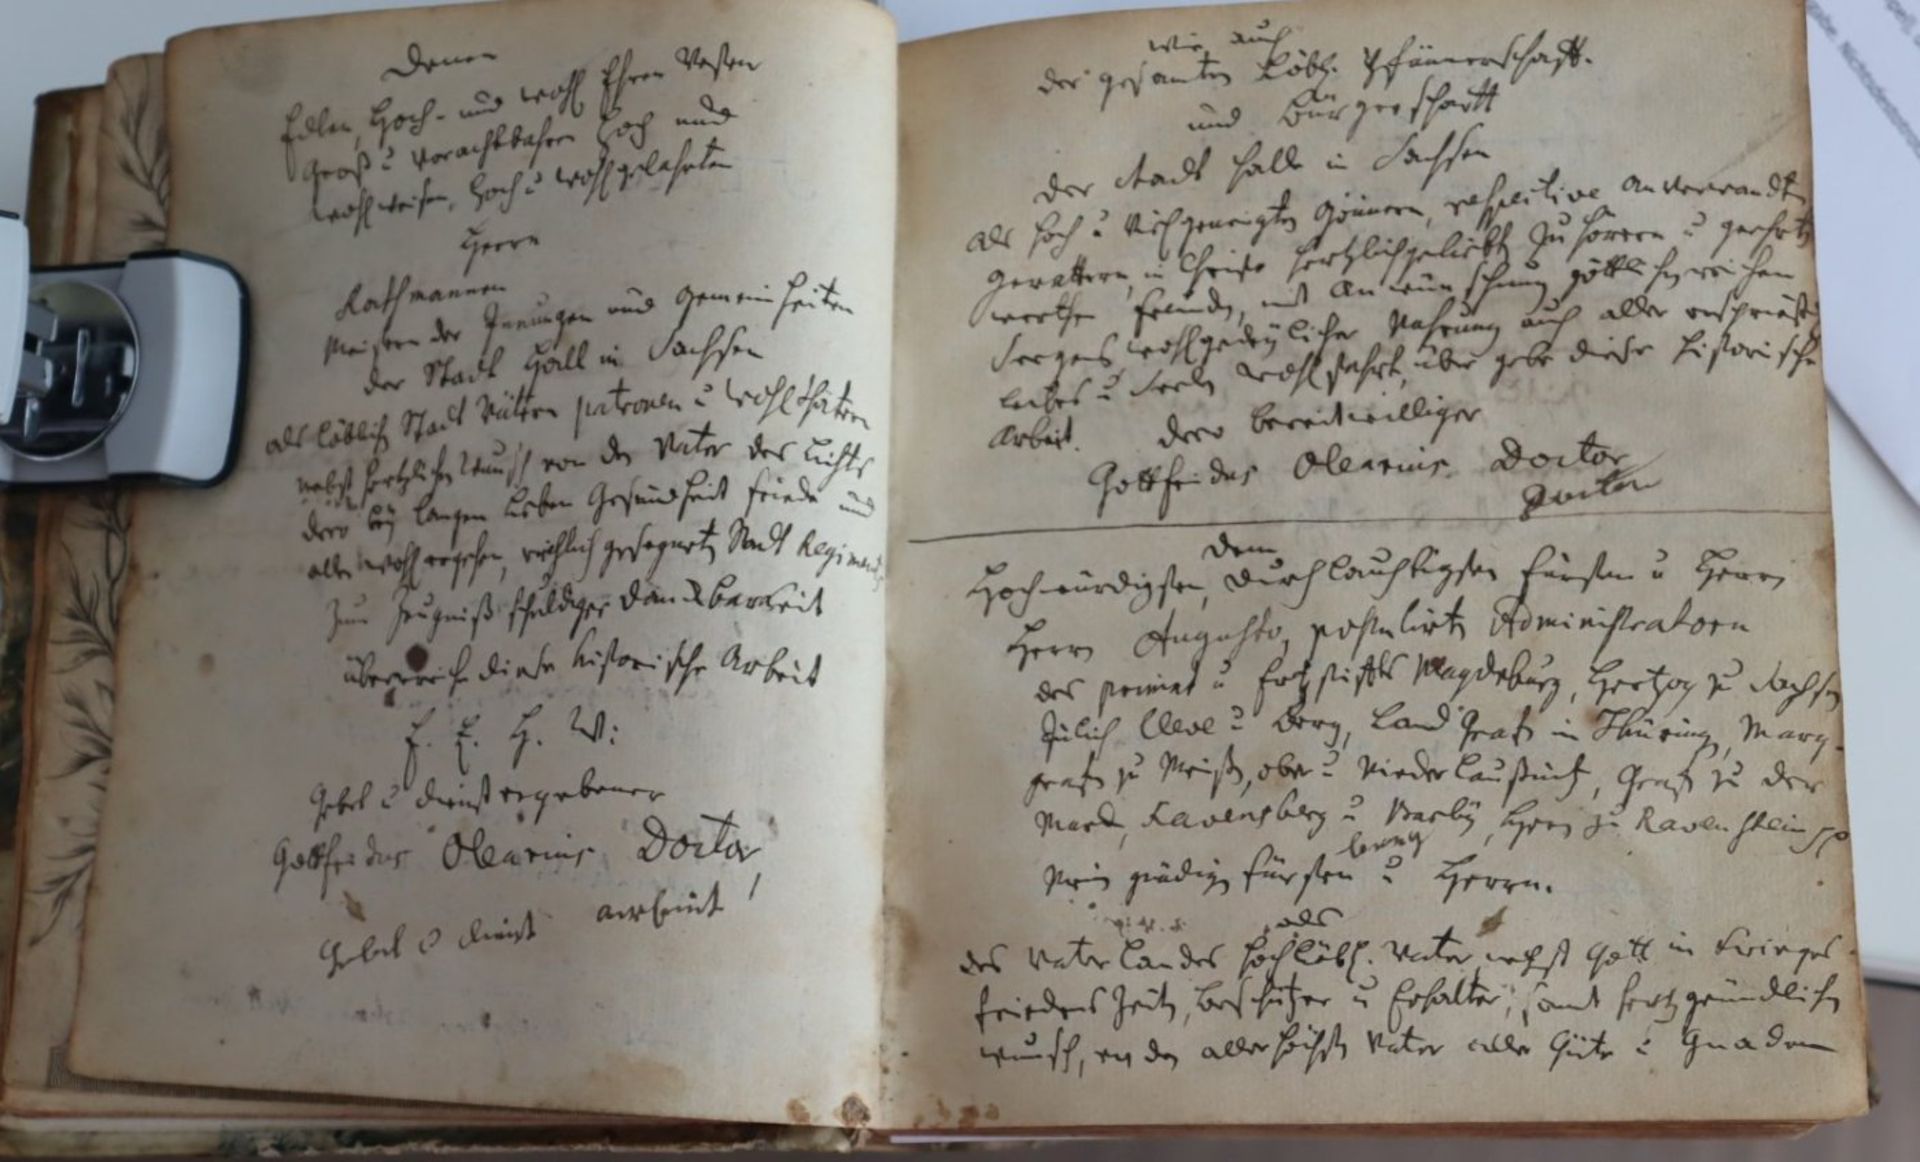 Denen
Edlen, Hoch- und wohl Ehren Vesten
Groß u Vorachtbahren Hoch und
wohlweisen, Hoch u wohlgelahrten
Herrn
Rathmannen
Meistern der Innungen und Gemeinheiten
der Stadt Hall in Sachsen
als löblich Stadt Vätern patronen u wohlthätern
nebst hertzlichen Wunsch von den Vater des Lichts
dero bey langen Leben Gesundheit friede und
alle wohlergehen, reichlich gesegnets Stadt Regiments
zum Zeugniß schuldiger Danckbarkeit
überreiche diese historische Arbeit
E. E. H. W:
Gebet u dienstergebener
Gottfridus Olearius Doctor,
Gebet u dienst
wie auch
der gesamten Löbl. Pfännerschafft.
und Bürgerschafft
der Stadt Halle in Sachsen
als Hoch u Vielgeneigten Gönnern, respective Anverwandten
Gevattern, in Christo hertzlichgeliebten Zuhörern u geehrten
werthen freunden, mit Anwünschung göttlichen reichen
Seegens, wohlgedeylicher Nahrung auch aller
Leibes u Seelen wohlfahrt, übergebe diese historische
Arbeit. dero bereitwilliger
Gottfridus Olearius Doctor
Doctor
Dem
Hochwürdigsten, Durchlauchtigsten Fürsten u Herrn
Herrn Augusto, postulirten Administratorn
des primat u Ertzstiffts Magdeburg, Hertzog zu Sachsen
Jülich Cleve u Berg, Landgrafen in Thüringen, Marg-
grafen zu Meißen, ober u Niederlaußnitz, Grafen zu der
Marck, Ravensberg u Barby, Herrn zu Ravenstein
Mein gnädigen Fürsten u Herrn.
als
des Vaterlandes Hochlöbl. Vater nechst Gott in
friedens Zeiten, Beschützer u Erhalter, samt hertzgründlichen
wunsch, den allerhöchsten Vater aller Güte u Gnaden